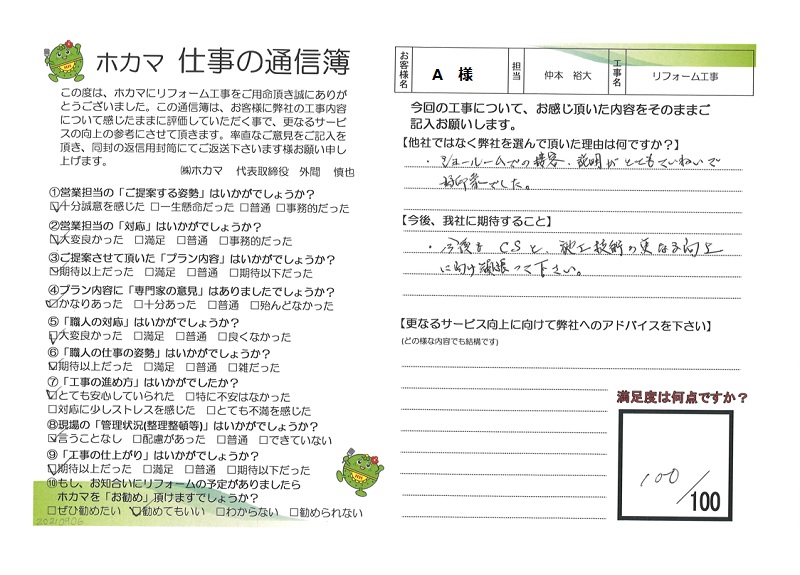 ホカマ 仕事の通信簿
この度は、ホカマにリフォーム工事をご用命頂き誠にありが
とうございました。この通信簿は、お客様に弊社の工事内容
について感じたままに評価していただく事で、更なるサービ
スの向上の参考にさせて頂きます。率直なご意見をご記入を
頂き、同封の返信用封筒にてご返送下さいます様お願い申し
上げます。
㈱ホカマ 代表取締役 外間 慎也
①営業担当の「ご提案する姿勢」はいかがでしょうか?
☑十分誠意を感じた □一生懸命だった □普通 □事務的だった
②営業担当の「対応」はいかがでしょうか?
☑大変良かった □満足 □普通 □事務的だった
③ご提案させて頂いた「プラン内容」はいかがでしょうか?
☑期待以上だった □満足 □普通 □期待以下だった
④プラン内容に「専門家の意見」はありましたでしょうか?
☑かなりあった □十分あった □普通 □殆んどなかった
⑤「職人の対応」はいかがでしょうか?
☑大変良かった □満足 □普通 □良くなかった
⑥「職人の仕事の姿勢」はいかがでしょうか?
☑期待以上だった □満足 □普通 □雑だった
⑦「工事の進め方」はいかがでしたか?
☑とても安心していられた □特に不安はなかった
□対応に少しストレスを感じた □とても不満を感じた
⑧現場の「管理状況(整理整頓等)」はいかがでしょうか?
☑言うことなし □配慮があった □普通 □できていない
⑨「工事の仕上がり」はいかがでしょうか?
☑期待以上だった □満足 □普通 □期待以下だった
⑩もし、お知合いにリフォームの予定がありましたら
ホカマを「お勧め」頂けますでしょうか?
□ぜひ勧めたい ☑勧めてもいい □わからない □勧められない
20210906
お客様名 A 様 担当 仲本 裕大 工事名 リフォーム工事
今回の工事について、お感じ頂いた内容をそのままご
記入お願いします。
【他社ではなく弊社を選んで頂いた理由は何ですか?】
・ショールームでの接客、説明がとてもていねいで
好印象でした。
【今後、我社に期待すること】
・今後も CSと、施工技術の更なる向上
に向け頑張って下さい。
【更なるサービス向上に向けて弊社へのアドバイスを下さい】
(どの様な内容でも結構です)
満足度は何点ですか?
100/100